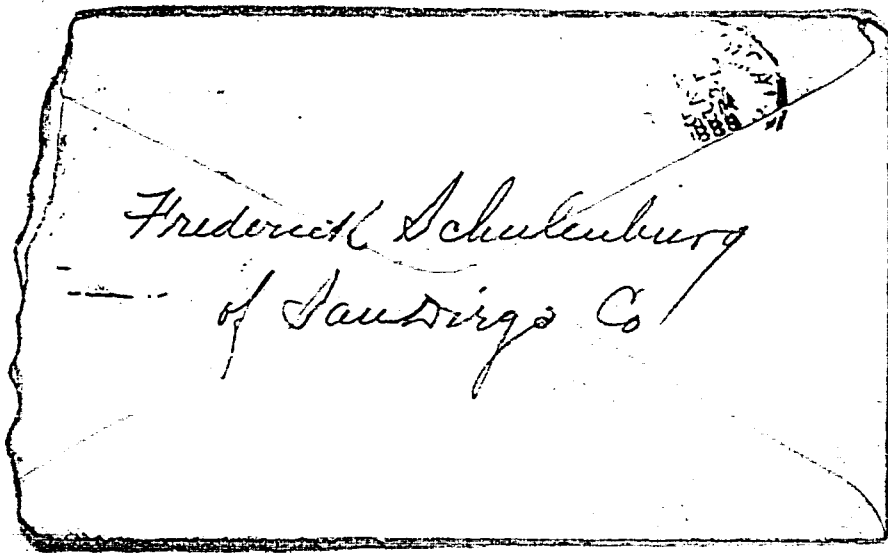 Frederick Schulenburg
of San Diego Co